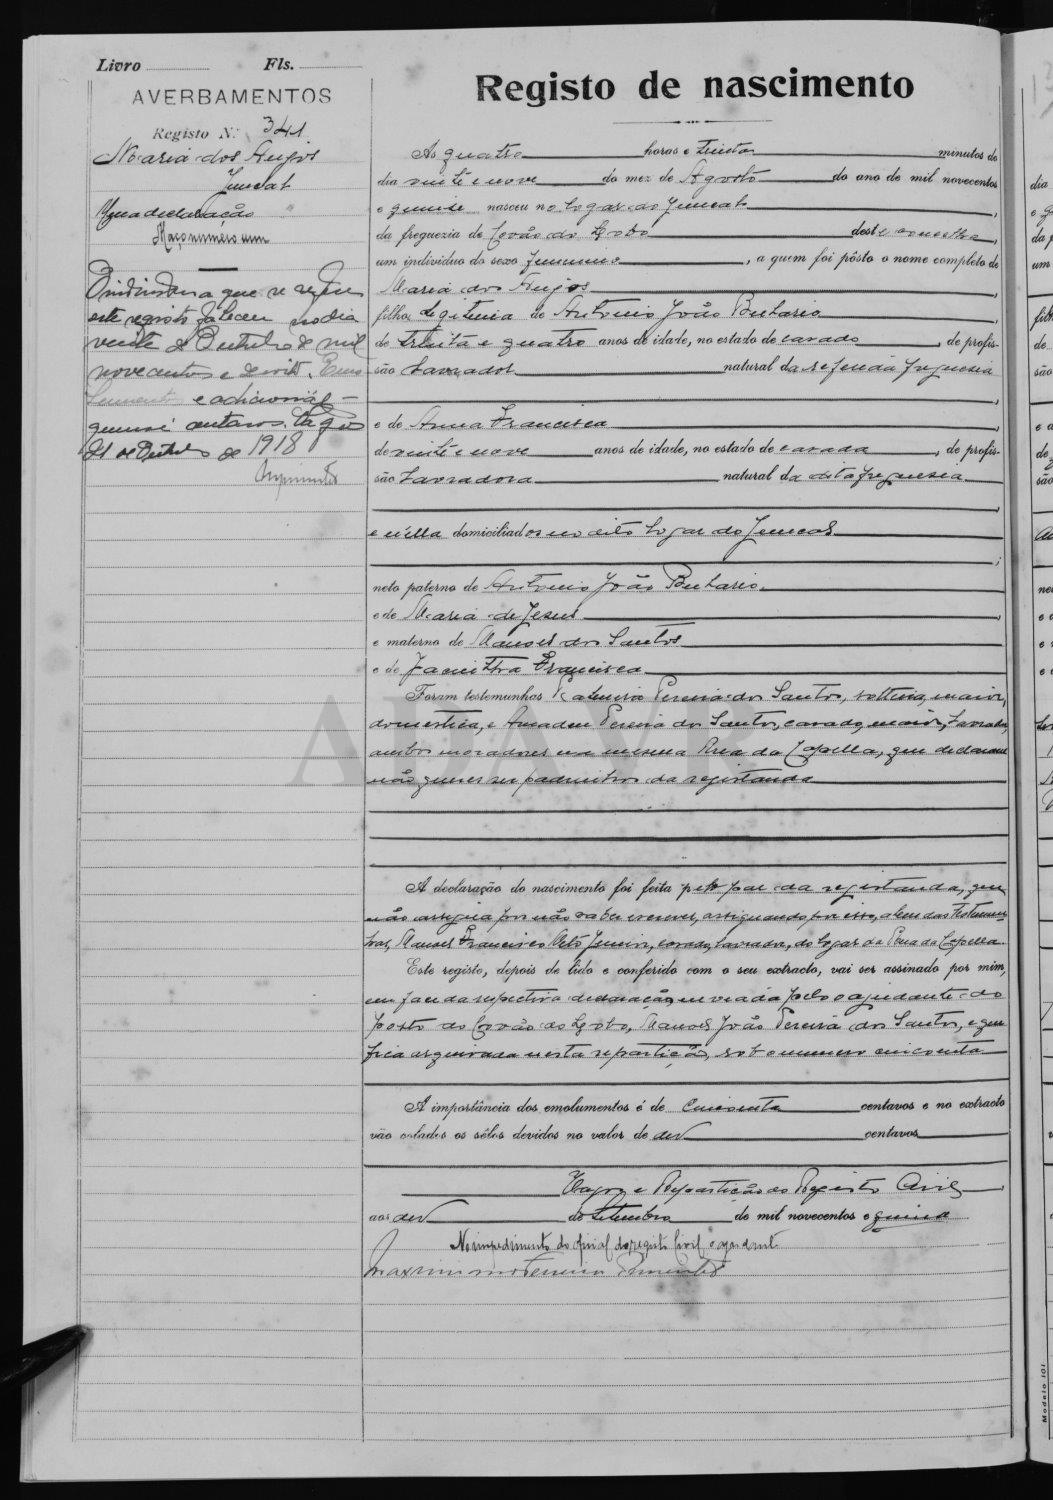 Livro Fls.
AVERBAMENTOS
Registo N.º 341
Maria dos Anjos
Juncal
Uma declaração
Maço numero um
O individuo a que se refere
este registo faleceu no dia
vinte de Outubro de mil
novecentos e dezoito. Emo
lumento e adicional
quinze centavos. Vagos
21 de Outubro de 1918
Registo de nascimento
Ás quatro horas e trinta minutos do
dia vinte e nove do mez de Agosto do ano de mil novecentos
e quinze nasceu no logar do Juncal
da freguezia de Covão do Lobo deste concelho,
um individuo do sexo feminino, a quem foi pôsto o nome completo de
Maria dos Anjos
filha legitima de Antonio João
de trinta e quatro anos de idade, no estado de casado, de profis-
são Lavrador natural da referida freguesia
e de Anna Francisca
de vinte e nove anos de idade, no estado de casada, de profis-
são Lavradora natural da dita freguesia
e n'ella domiciliados no dito logar do Juncal
neto paterno de Antonio João
e de Maria de Jesus
e materno de Manoel dos Santos
e de Jacintha Francisca
Foram testemunhas Pereira dos Santos, solteira, maior,
domestica, e Amadeu Pereira dos Santos, casado, maior, Lavrador,
ambos moradores na mesma da Capella, que declararam
não querer ser padrinhos da registanda
ADAVR
A declaração do nascimento foi feita pelo pae da registanda, que
não assigna por não saber escrever, assignando, por isso, alem das testemu-
nhas, Manoel Francisco Neto Junior, casado, lavrador, do logar da da Capella.
Este registo, depois de lido e conferido com o seu extracto, vai ser assinado por mim,
em face da respectiva declaração enviada pelo ajudante do
posto do Covão do Lobo, Manoel João Pereira dos Santos, e que
fica arquivada nesta repartição, sob o numero cincoenta
A importância dos emolumentos é de cincoenta centavos e no extracto
vão colados os sêlos devidos no valor de dez centavos
Vagos e Repartição do Registo Civil,
aos dez de Setembro de mil novecentos e quinze
No impedimento do oficial do registo civil o ajudante
Modelo 101